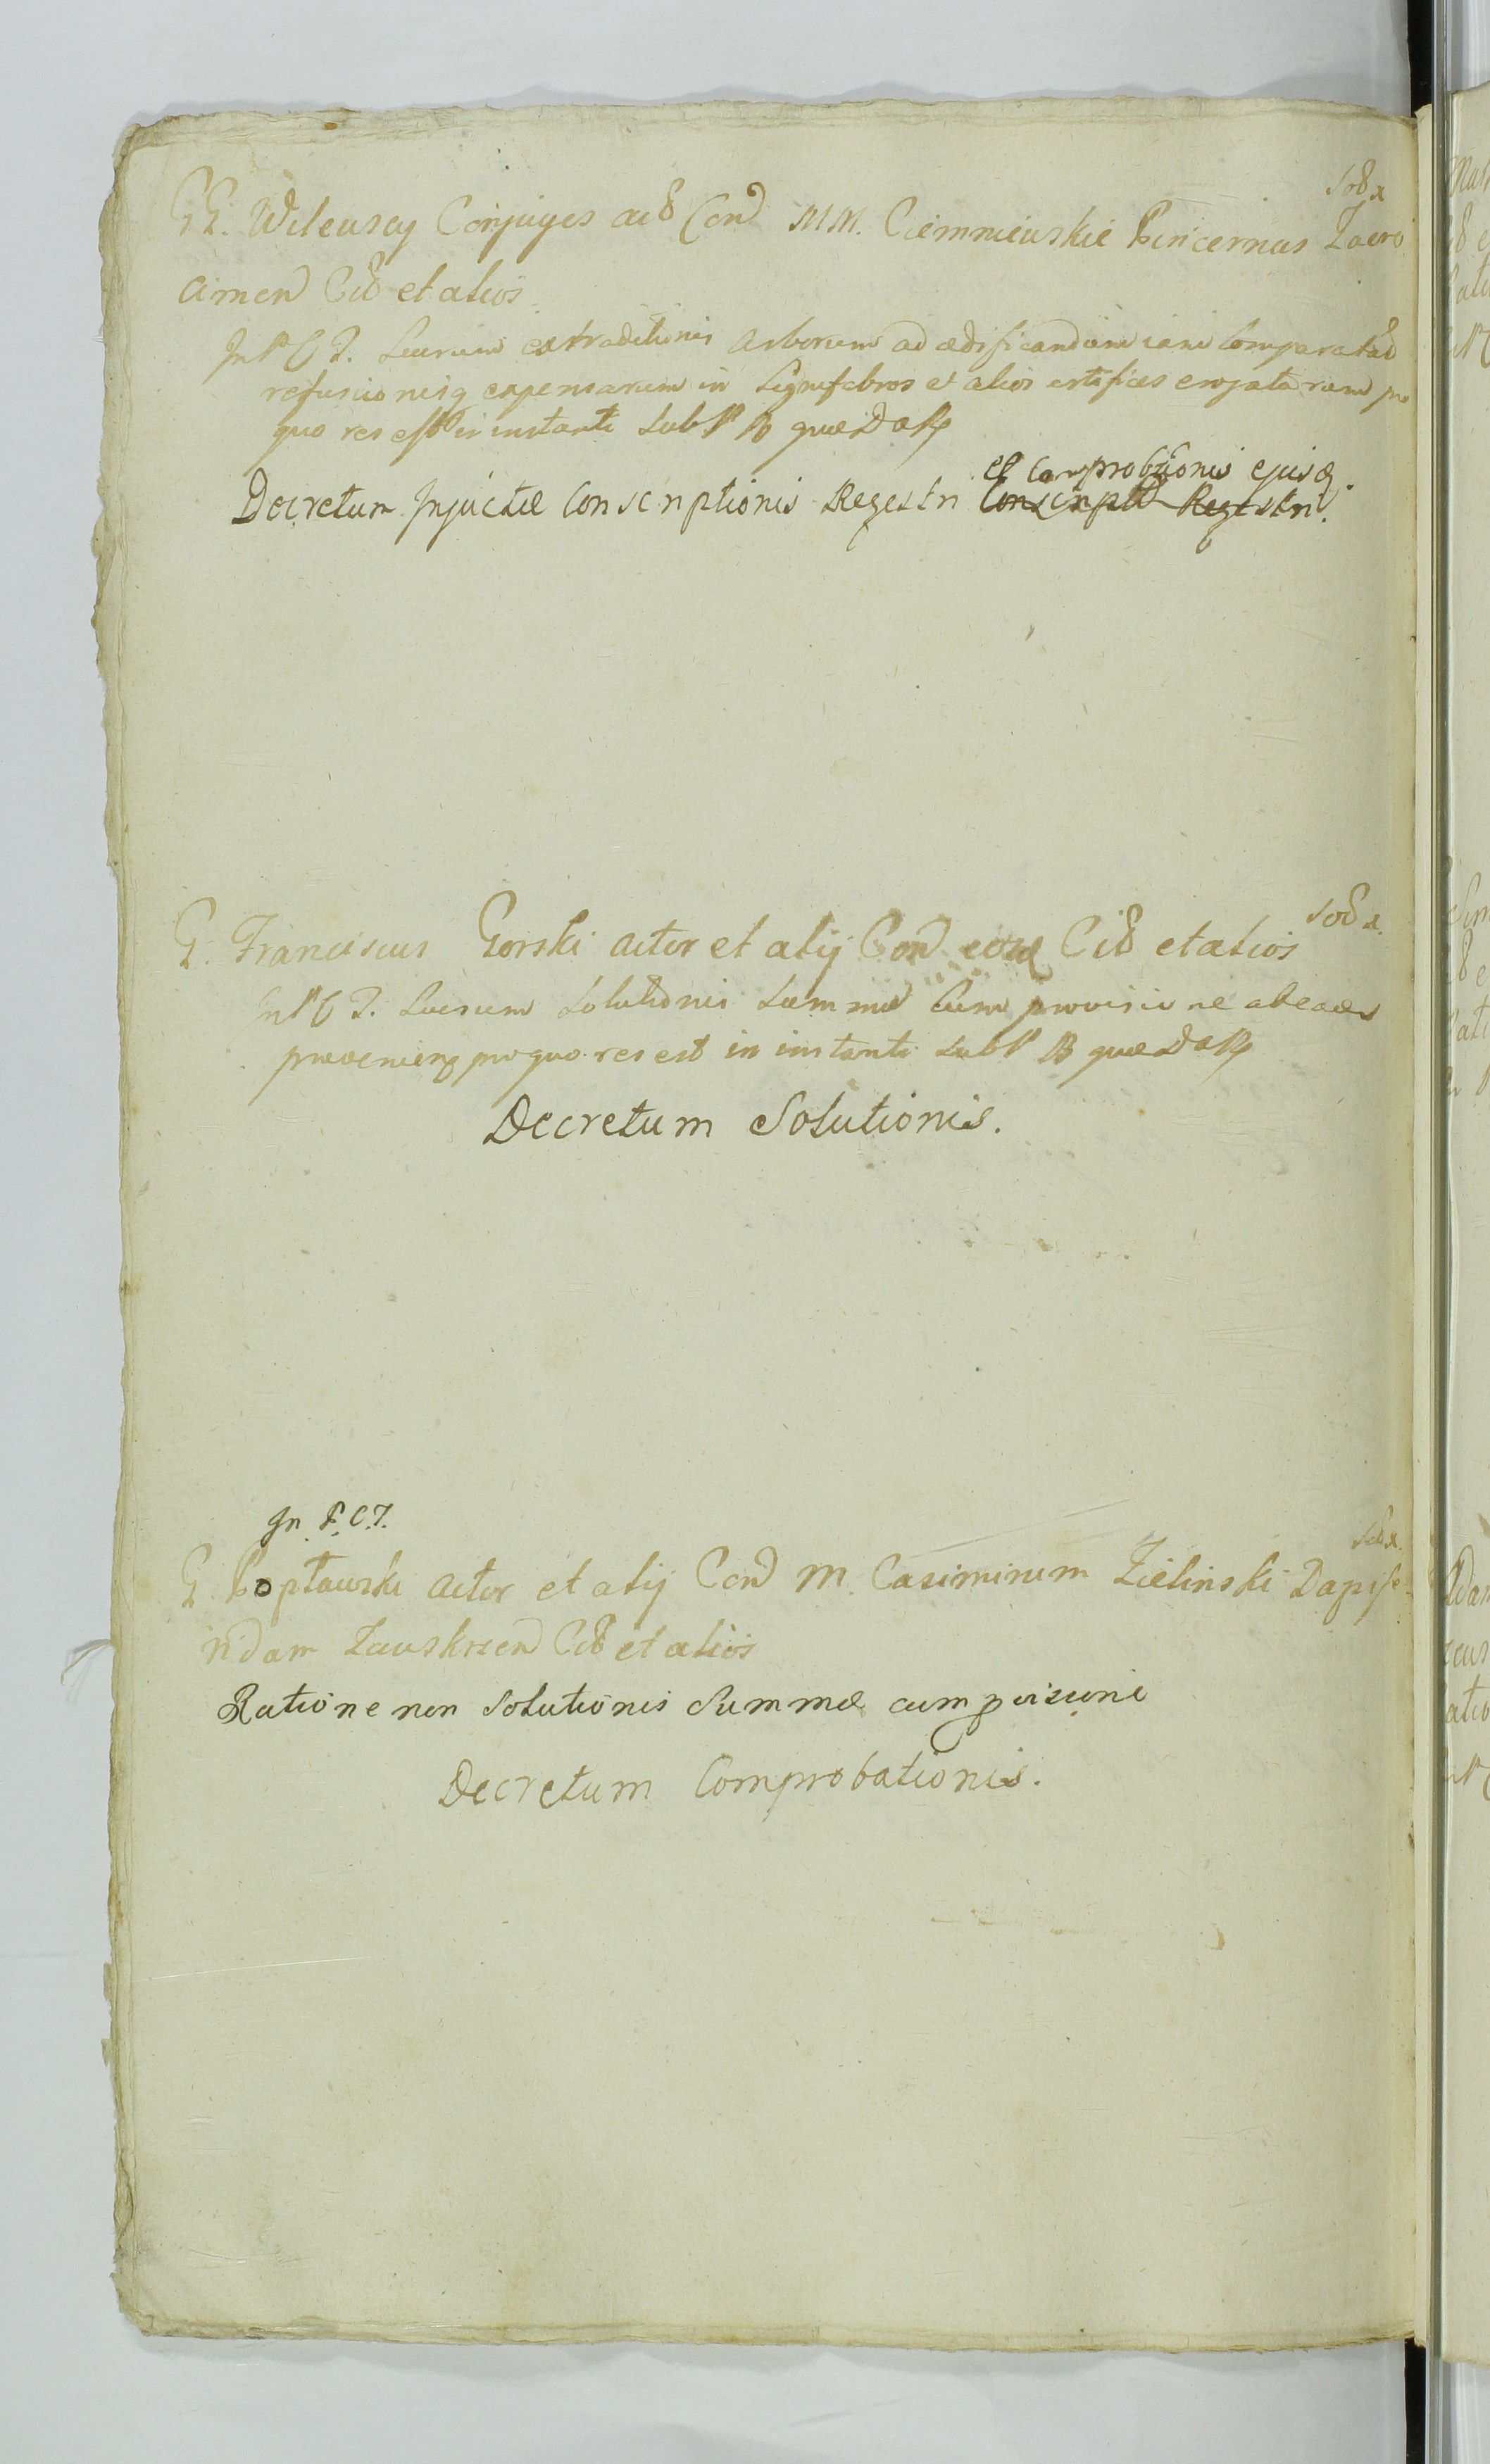 Sod x
GG. Wilewscy Conjuges act Con MM. Ciemniewskie Pincernas Zacro
cimen Cit et alios
In P C T. Lucrum extraditionis Arborum ad ædificandum iam Comparatar
refusionisq expensarum in Lignifabros et alios artifices erogatarum pro
quo res est in instanti sub P B quæ D a R
et Comprobtionis ejusd.
Decretum Injuctæ Conscriptionis Regestri Conscripti Regestri.
Sod x.
G. Franciscus Gorski actor et alij Con eosd Cit et alios
In P C T. Lucrum Solutionis Summæ Cum provisione ab ea
provenien pro quo res est in instanti sub P B quæ D a R
Decretum Solutionis.
In P. C. T.
Sod x.
G. Popławski actor et alij Con M. Casimirum Zielinski Dapife
ridam Zawskrzen Cit et alios
Ratione non Solutionis Summæ cum pvisione
Decretum Comprobationis.